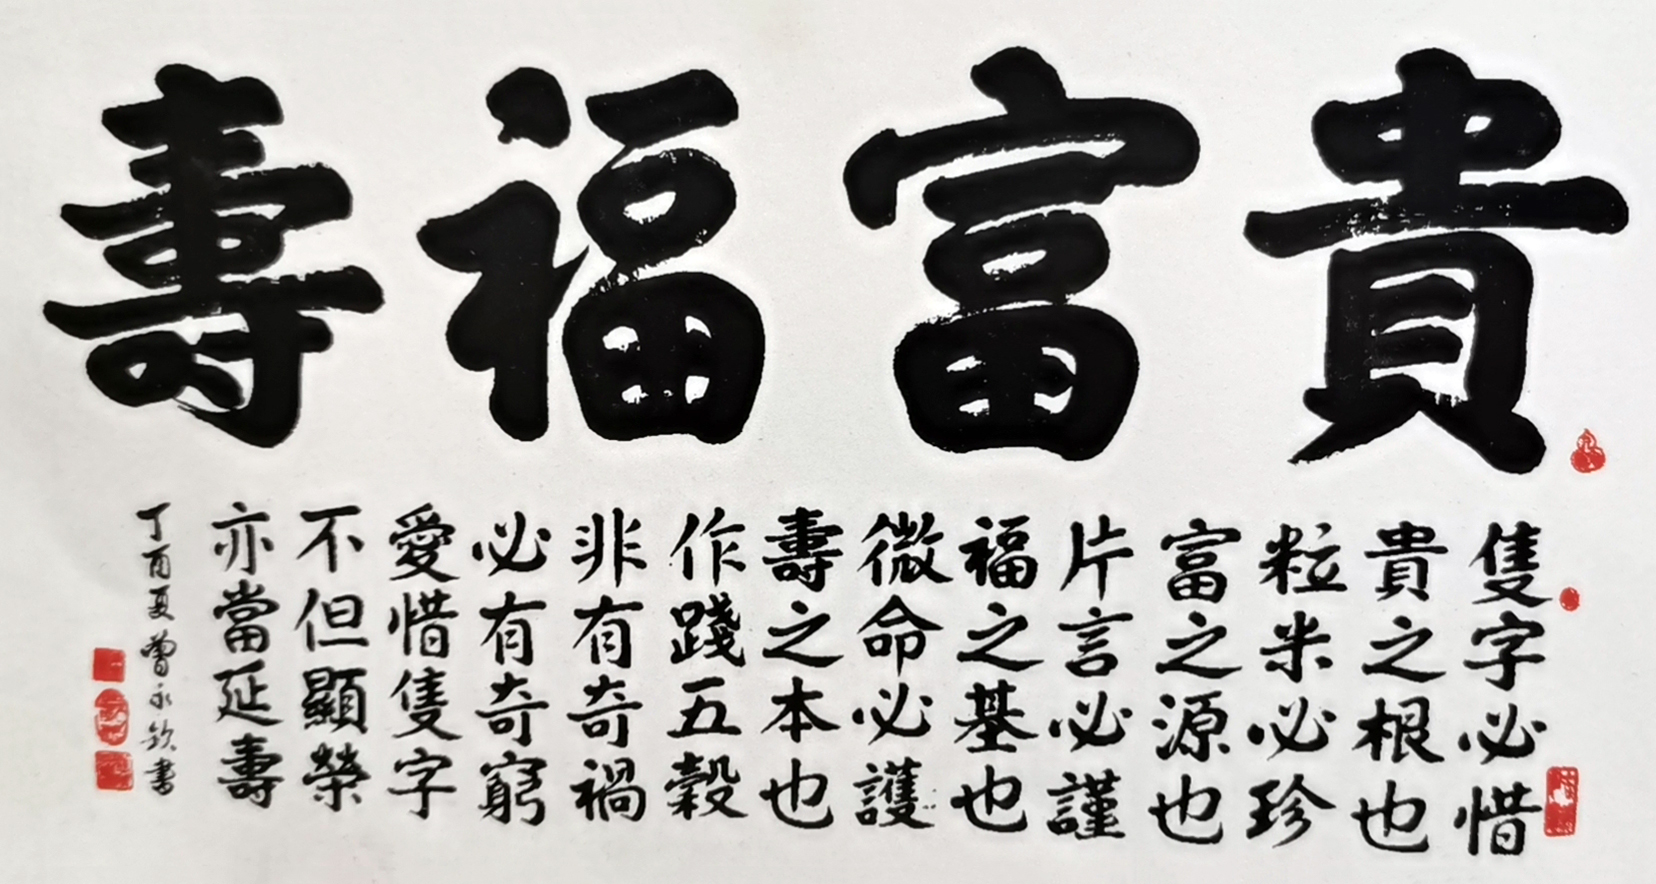 貴富福壽
隻字必惜
貴之根也
粒米必珍
富之源也
片言必謹
福之基也
微命必護
壽之本也
作踐五穀
非有奇禍
必有奇窮
愛惜隻字
不但顯榮
亦當延壽
丁酉夏曾永欽書